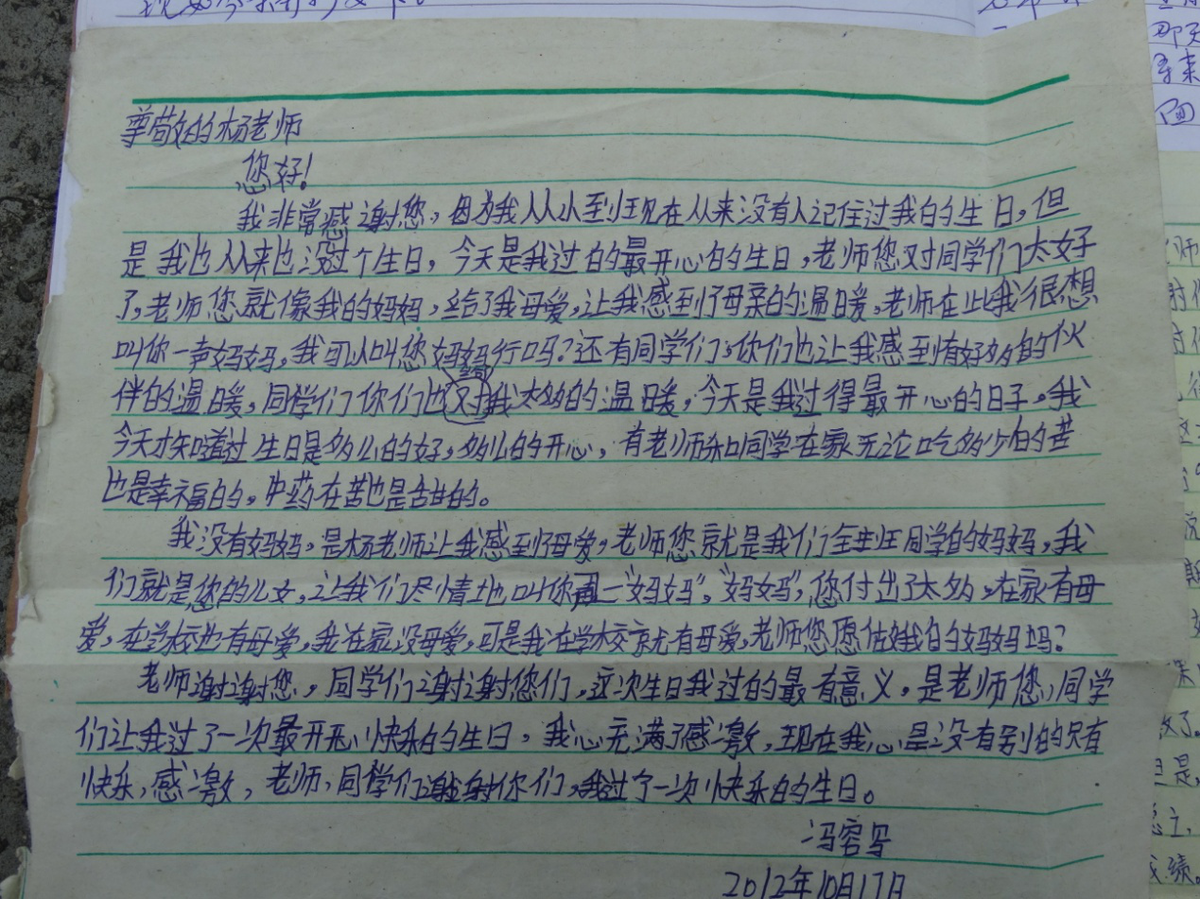 尊敬的杨老师
您好!
我非常感谢您,因为我从小到现在从来没有人记住过我的生日,但
是我也从来也没过个生日,今天是我过的最开心的生日,老师您对同学们太好
了,老师您就像我的妈妈,给了我母爱,让我感到了母亲的温暖,老师在此我很想
叫你一声妈妈,我可以叫您妈妈行吗?还有同学们,你们也让我感到有好多的伙
伴的温暖,同学们你们也对我太多的温暖,今天是我过得最开心的日子。我
今天才知道过生日是多么的好,多么的开心,有老师和同学在家无论吃多少的苦
也是幸福的,中药在苦也是甜的。
我没有妈妈,是杨老师让我感到了母爱,老师您就是我们全班同学的妈妈,我
们就是您的儿女,让我们尽情地叫你一"妈妈","妈妈",您付出了太多。在家有母
爱,在学校也有母爱,我在家没母爱,可是我在学校就有母爱,老师您愿做我的妈妈吗?
老师谢谢您,同学们谢谢您们,这次生日我过的最有意义,是老师您,同学
们让我过了一次最开心快乐的生日,我心充满了感激,现在我心里没有别的只有
快乐,感激,老师,同学们谢谢你们,我过了一次快乐的生日。
冯容
2012年10月17日